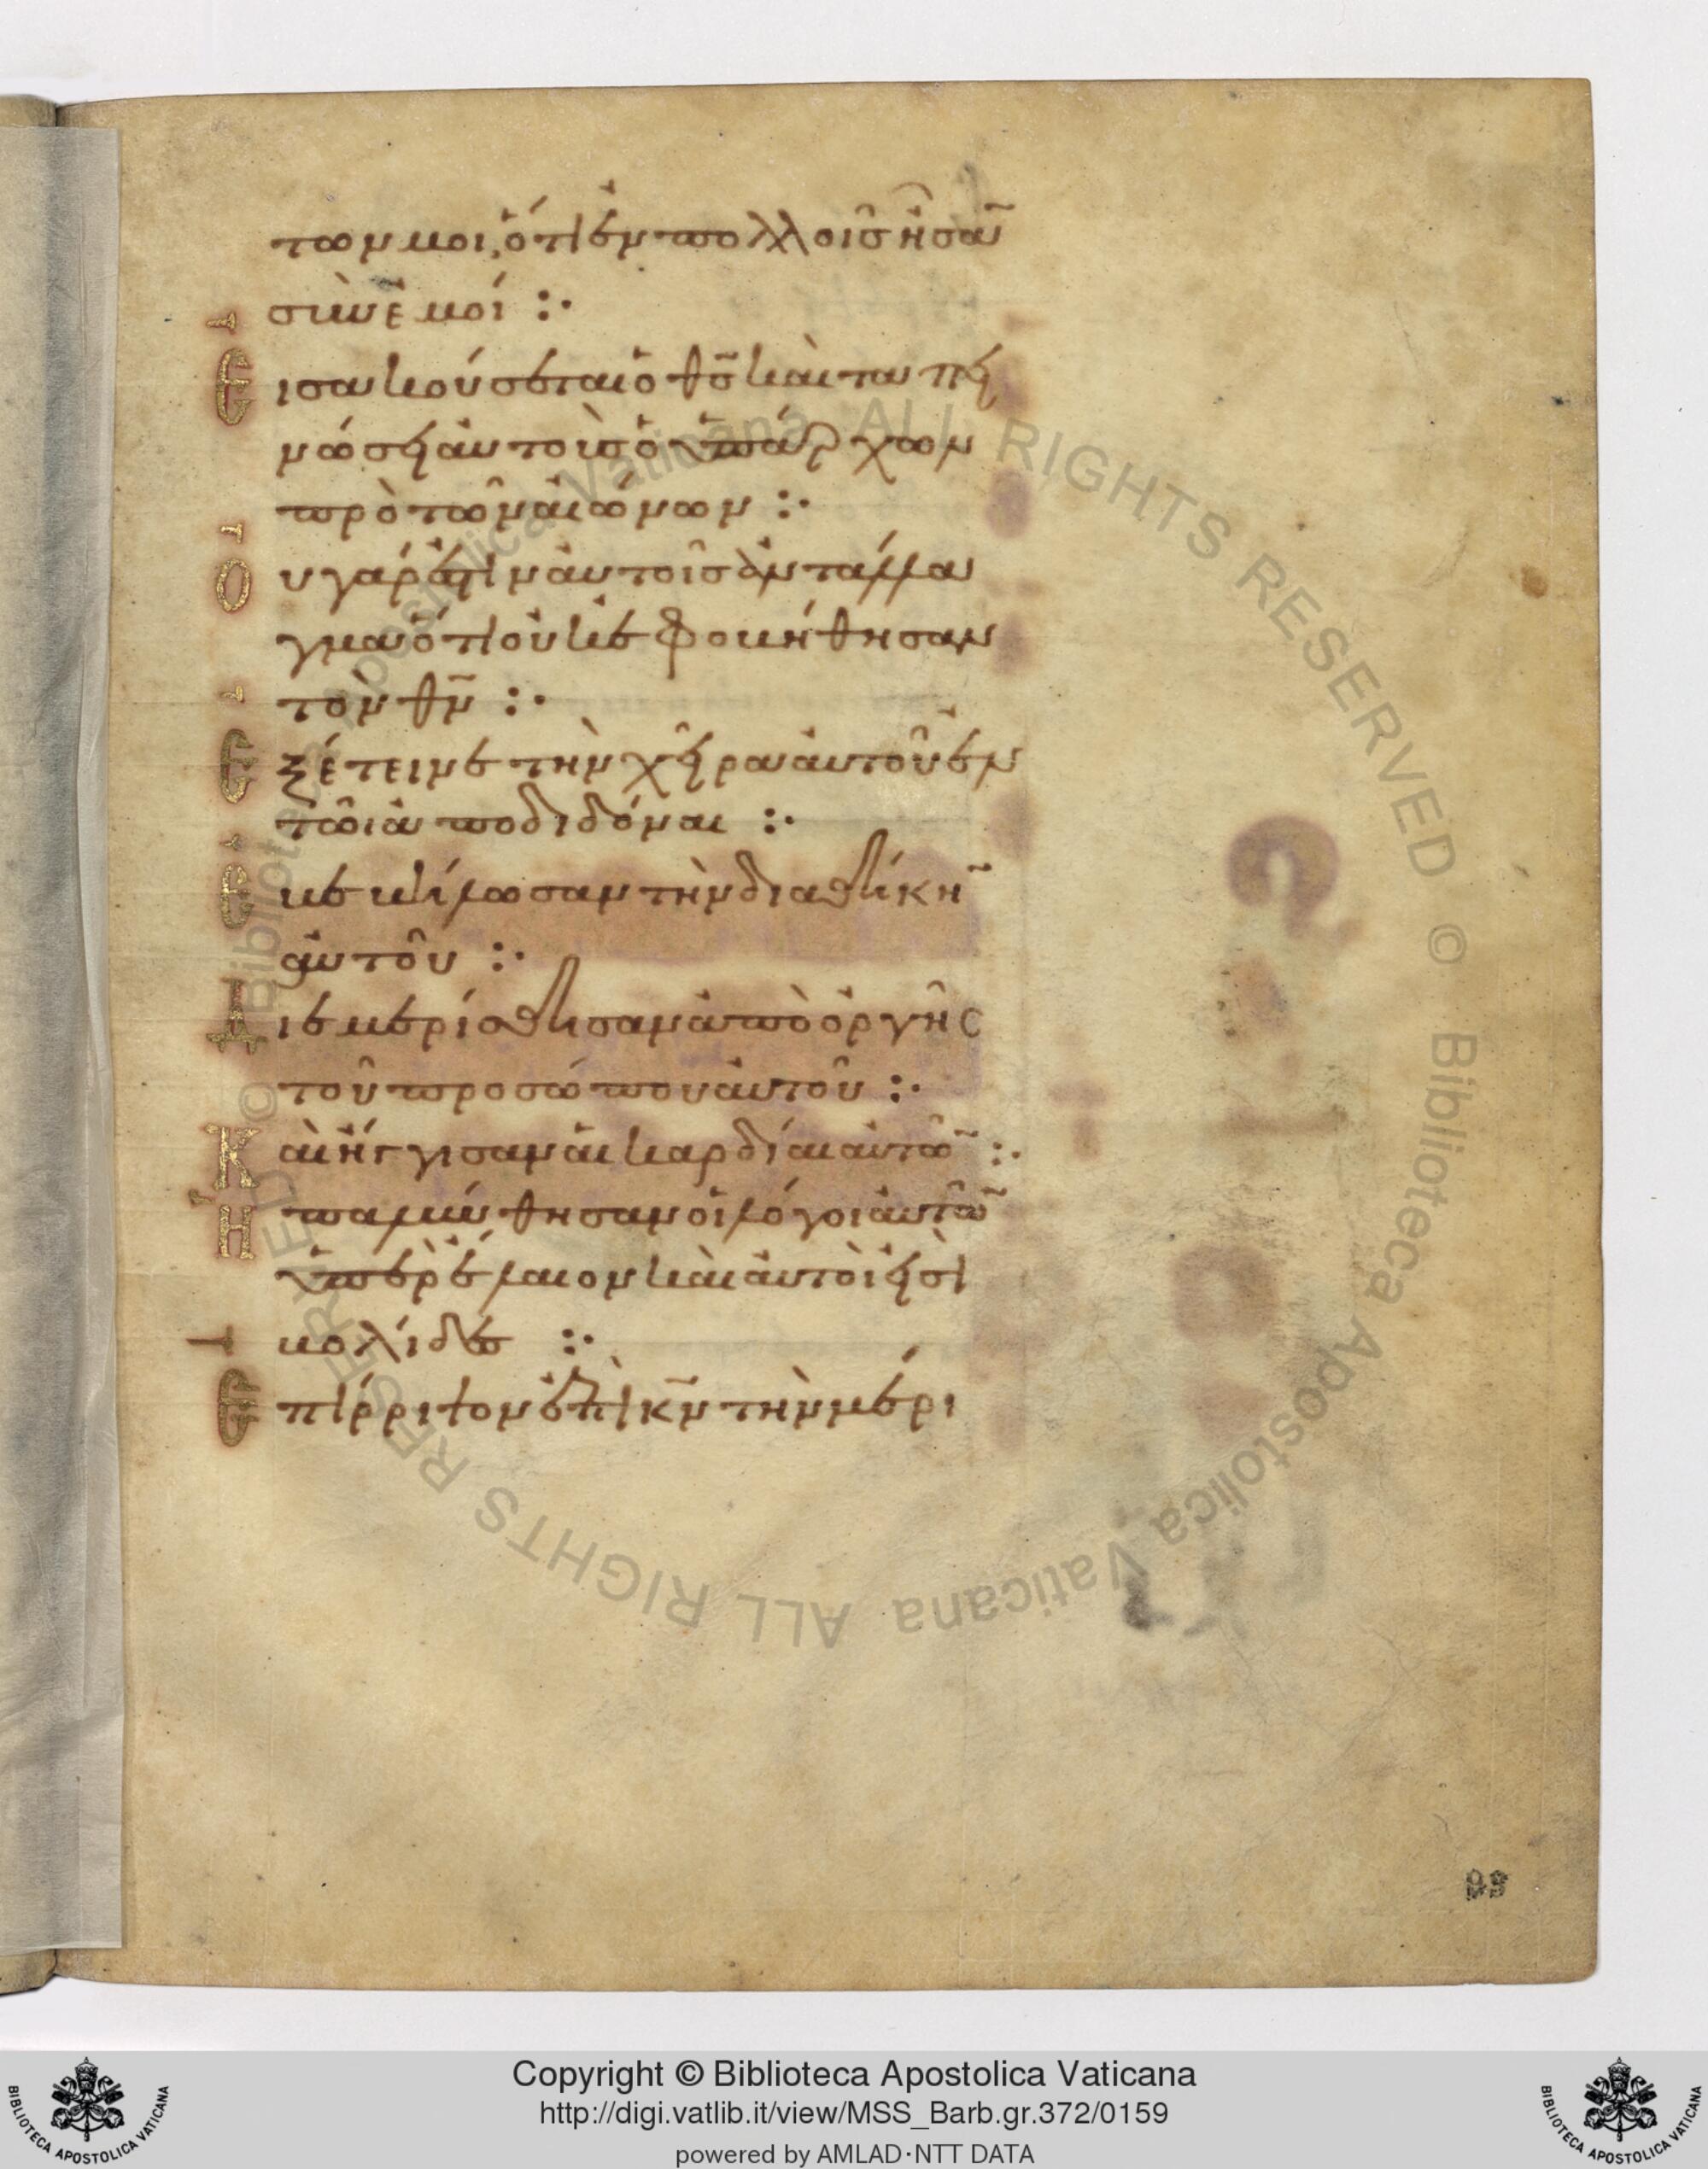 των μοι, ὅτι ἐν πολλοῖς ἦσα̅
σὺν ἐμοί :·
Εἰσακούσεται ὁ θ̅ς̅ καὶ ταπει
νώσει αὐτοὺς ὁ ὑπάρχων
πρὸ τῶν αἰώνων :·
Οὐ γάρ ἐστιν αὐτοῖς ἀντάλλα
γμα ὅτι οὐκ ἐφοβήθησαν
τὸν θ̅ν̅ :·
Ἐξέτεινε τὴν χεῖρα αὐτοῦ ἐν
τῶι ἀποδιδόναι :·
Ἐβεβήλωσαν τὴν διαθήκη̅
αὐτοῦ :·
Διεμερίσθησαν ἀπὸ ὀργῆς
τοῦ προσώπου αὐτοῦ :·
Καὶ ἤγγισαν αἱ καρδίαι αὐτῶ̅ :·
Ἡπαλύνθησαν οἱ λόγοι αὐτῶ̅
ὑπὲρ ἔλαιον καὶ αὐτοί εἰσι
βολίδες :·
Ἐπίρριψον ἐπὶ κ̅ν̅ τὴν μέρι
98
Copyright © Biblioteca Apostolica Vaticana
http://digi.vatlib.it/view/MSS_Barb.gr.372/0159
powered by AMLAD·NTT DATA
BIBLIOTECA APOSTOLICA VATICANA
BIBLIOTECA APOSTOLICA VATICANA
© Biblioteca Apostolica Vaticana ALL RIGHTS RESERVED © Biblioteca Apostolica Vaticana ALL RIGHTS RESERVED